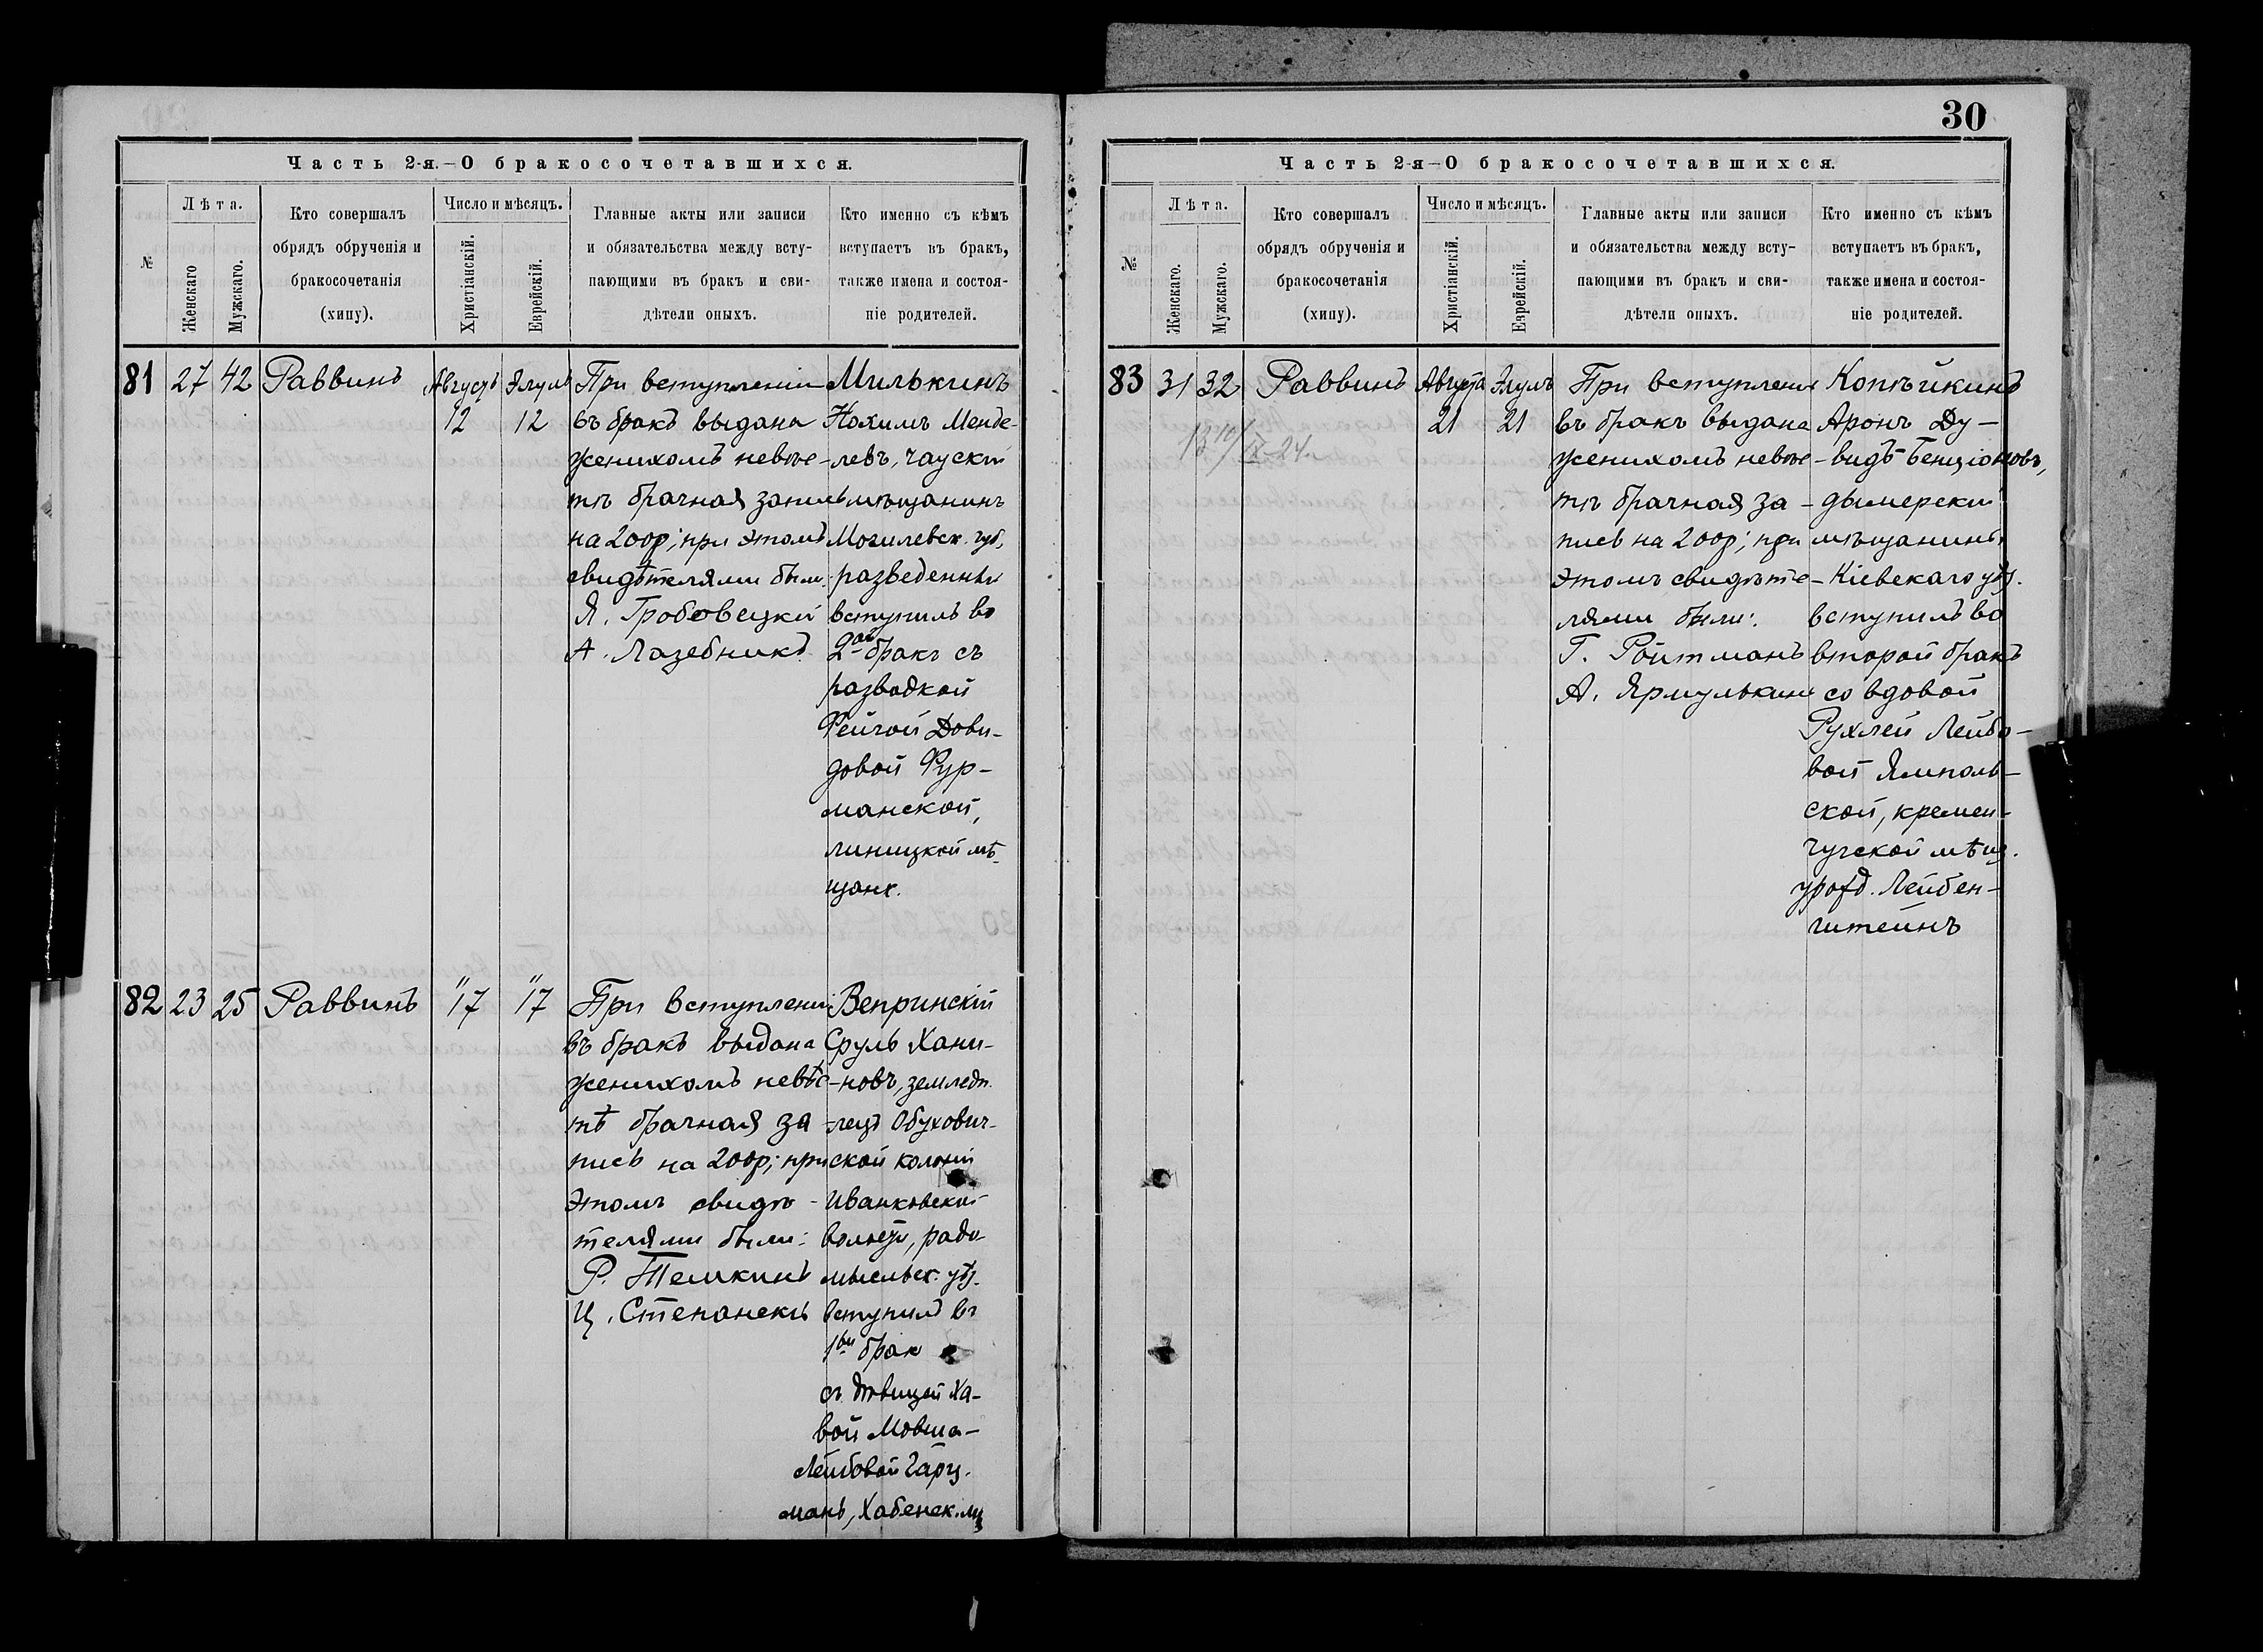 30
Часть 2-я.—О бракосочетавшихся.
№
Лѣта.
Женскаго
Мужскаго.
Кто совершалъ
обрядъ обрученія и
бракосочетанія
(хипу).
Число и мѣсяцъ.
Христіанскій.
Еврейскій.
Главные акты или записи
и обязательства между всту-
пающими въ бракъ и сви-
дѣтели оныхъ.
Кто именно съ кѣмъ
вступаетъ въ бракъ,
также имена и состоя-
ніе родителей.
81
27
42
Раввинъ
Августъ
12
Элулъ
12
При вступленіи
въ бракъ выдана
женихомъ невѣс-
тѣ брачная запись
на 200р; при этомъ
свидѣтелями были:
Я. Гробовецкій
А. Лазебникъ
Милькинъ
Нохимъ Менде-
левъ, чаускій
мѣщанинъ
Могилевск. губ,
разведенный
вступилъ во
2ой бракъ съ
разводкой
Фейгой Дови-
довой Фур-
манской,
линицкой мѣ-
щанк.
82
23
25
Раввинъ
"
17
"
17
При вступлени
въ бракъ выдана
женихомъ невѣс-
тѣ брачная за-
пись на 200р; при
этомъ свидѣ-
телями были:
Р. Темкинъ
Ц. Степанскі
Вепринскій
Сруль Хаи-
мовъ, землед.
лецъ Обухович-
ской колоніи
Иванковской
волости, радо-
мысльск. уѣз.
вступилъ въ
1ый брак
съ дѣвицей Ха-
вой Мовша-
Лейбовой Гарц-
манъ, Хабенск. мщ
Часть 2-я—О бракосочетавшихся.
№
Лѣта.
Женскаго.
Мужскаго.
Кто совершалъ
обрядъ обрученія и
бракосочетанія
(хипу).
Число и мѣсяцъ.
Христіанскій.
Еврейскій.
Главные акты или записи
и обязательства между всту-
пающими въ бракъ и сви-
дѣтели оныхъ.
Кто именно съ кѣмъ
вступаетъ въ бракъ,
также имена и состоя-
ніе родителей.
83
31
32
Раввинъ
Августа
21
Элулъ
21
При вступлени
въ бракъ выдана
женихомъ невѣс-
тѣ брачная за-
пись на 200р; при
этомъ свидѣте-
лями были:
Г. Ройтманъ
А. Ярмулькин
Копѣйкинъ
Аронъ Ду-
видъ Бенціоновъ,
дымерскій
мѣщанинъ
Кіевскаго уѣз.
вступилъ во
второй бракъ
со вдовой
Рухлей Лейбо-
вой Ямполь-
ской, кремен-
чугской мѣщ.
урожд. Лейбен-
штейнъ